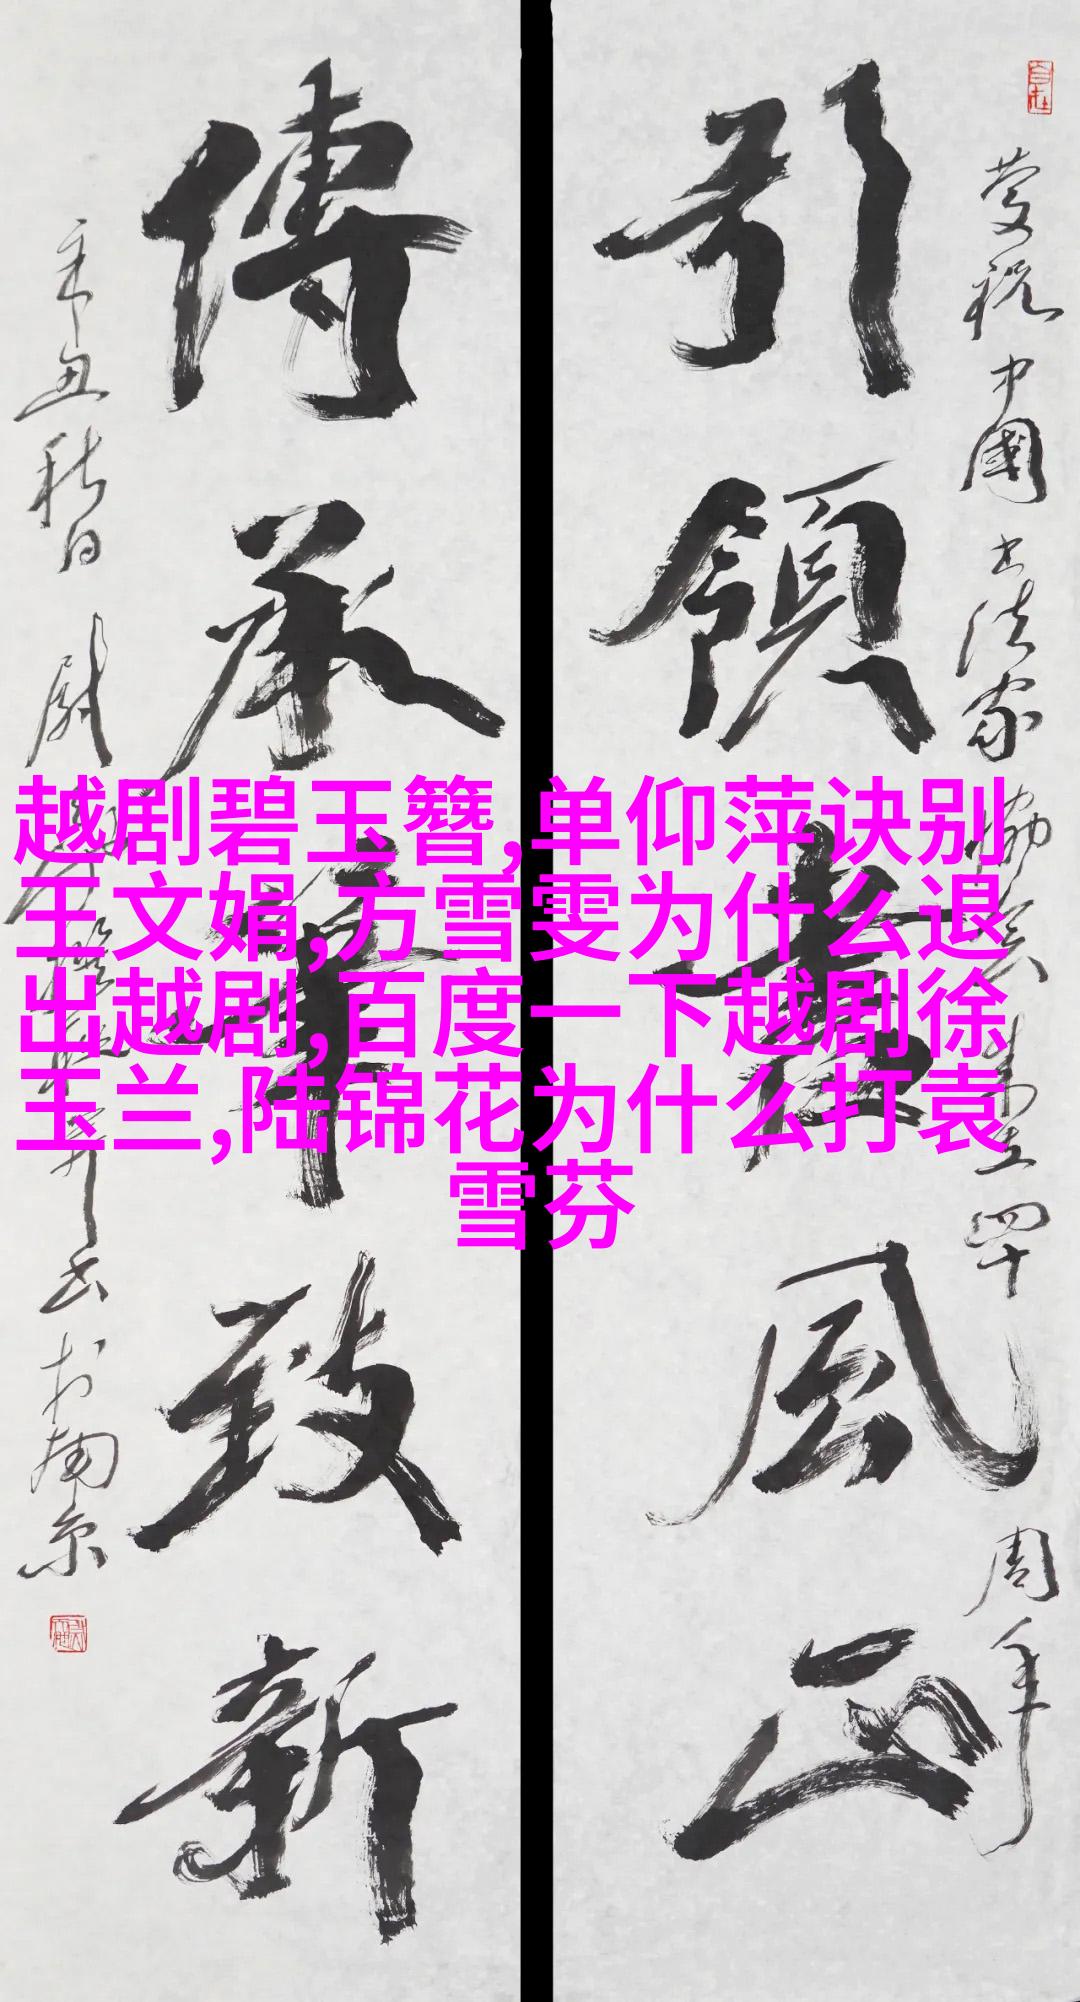 慶祝中國书法家协会成立四十周年
引領書風正
傳承筆致新
辛丑秋日
书于南京
越剧碧玉簪,单仰萍诀别
王文娟,方雪雯为什么退
出越剧,百度一下越剧徐
玉兰,陆锦花为什么打袁
雪芬